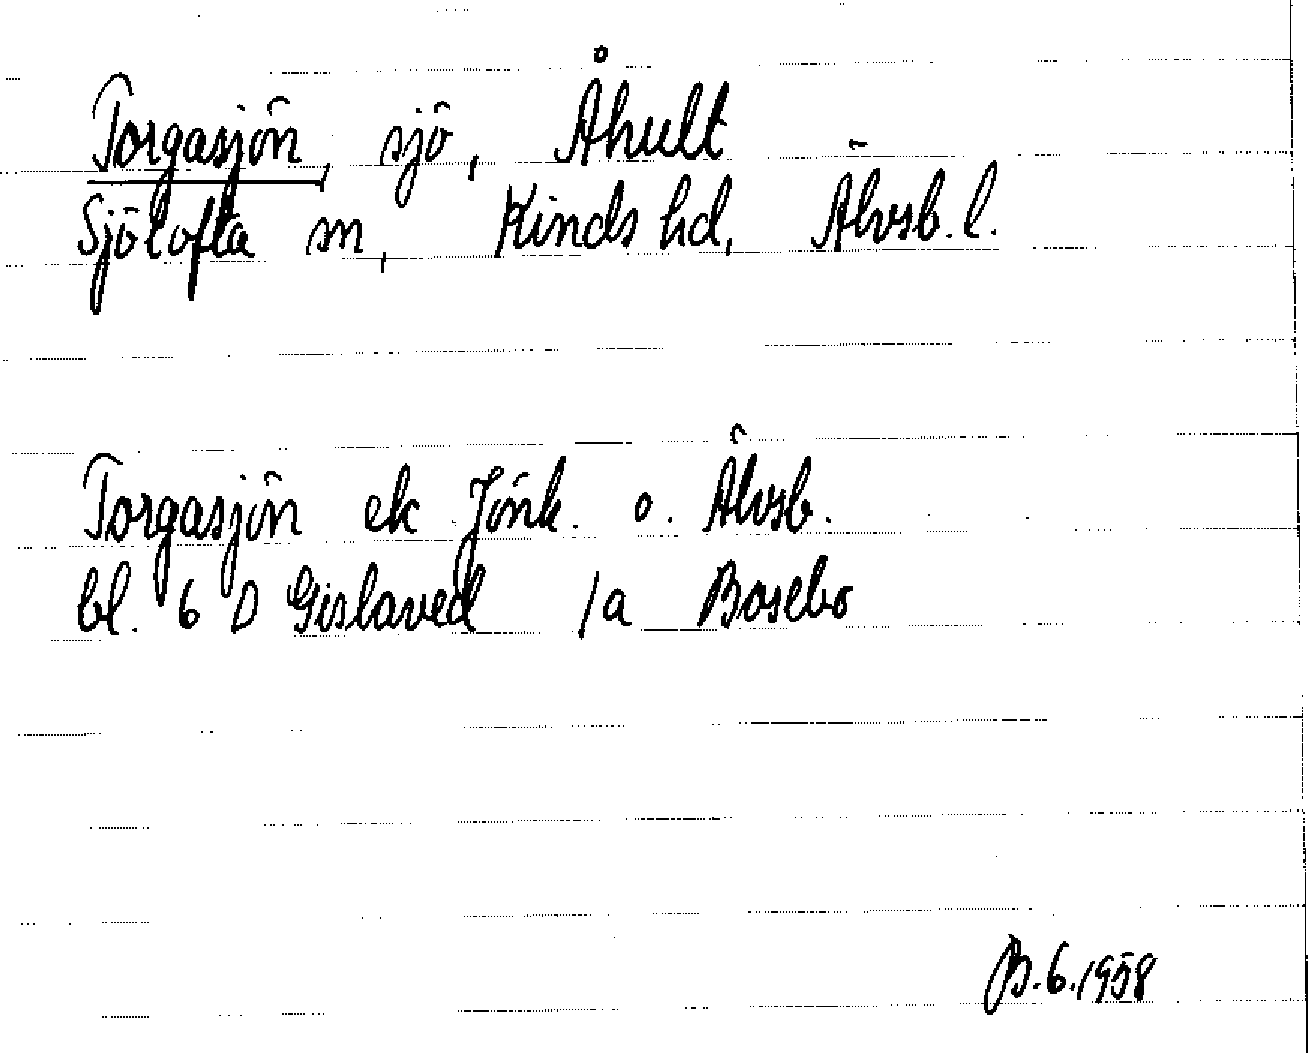 Torgasjön, sjö, Åhult
Sjötofta sn, Kinds hd, Älvsb. l.
Torgasjön ek Jönk. o. Älvsb.
bl. 6 D Gislaved /a Bosebo
B.6.1958